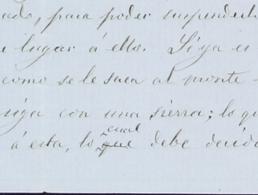 para poder suspenderl
lugar á ello. Siga en
como se le saca al monte
siga con una sierra; lo qu
á esta, lo que cual debe decidi